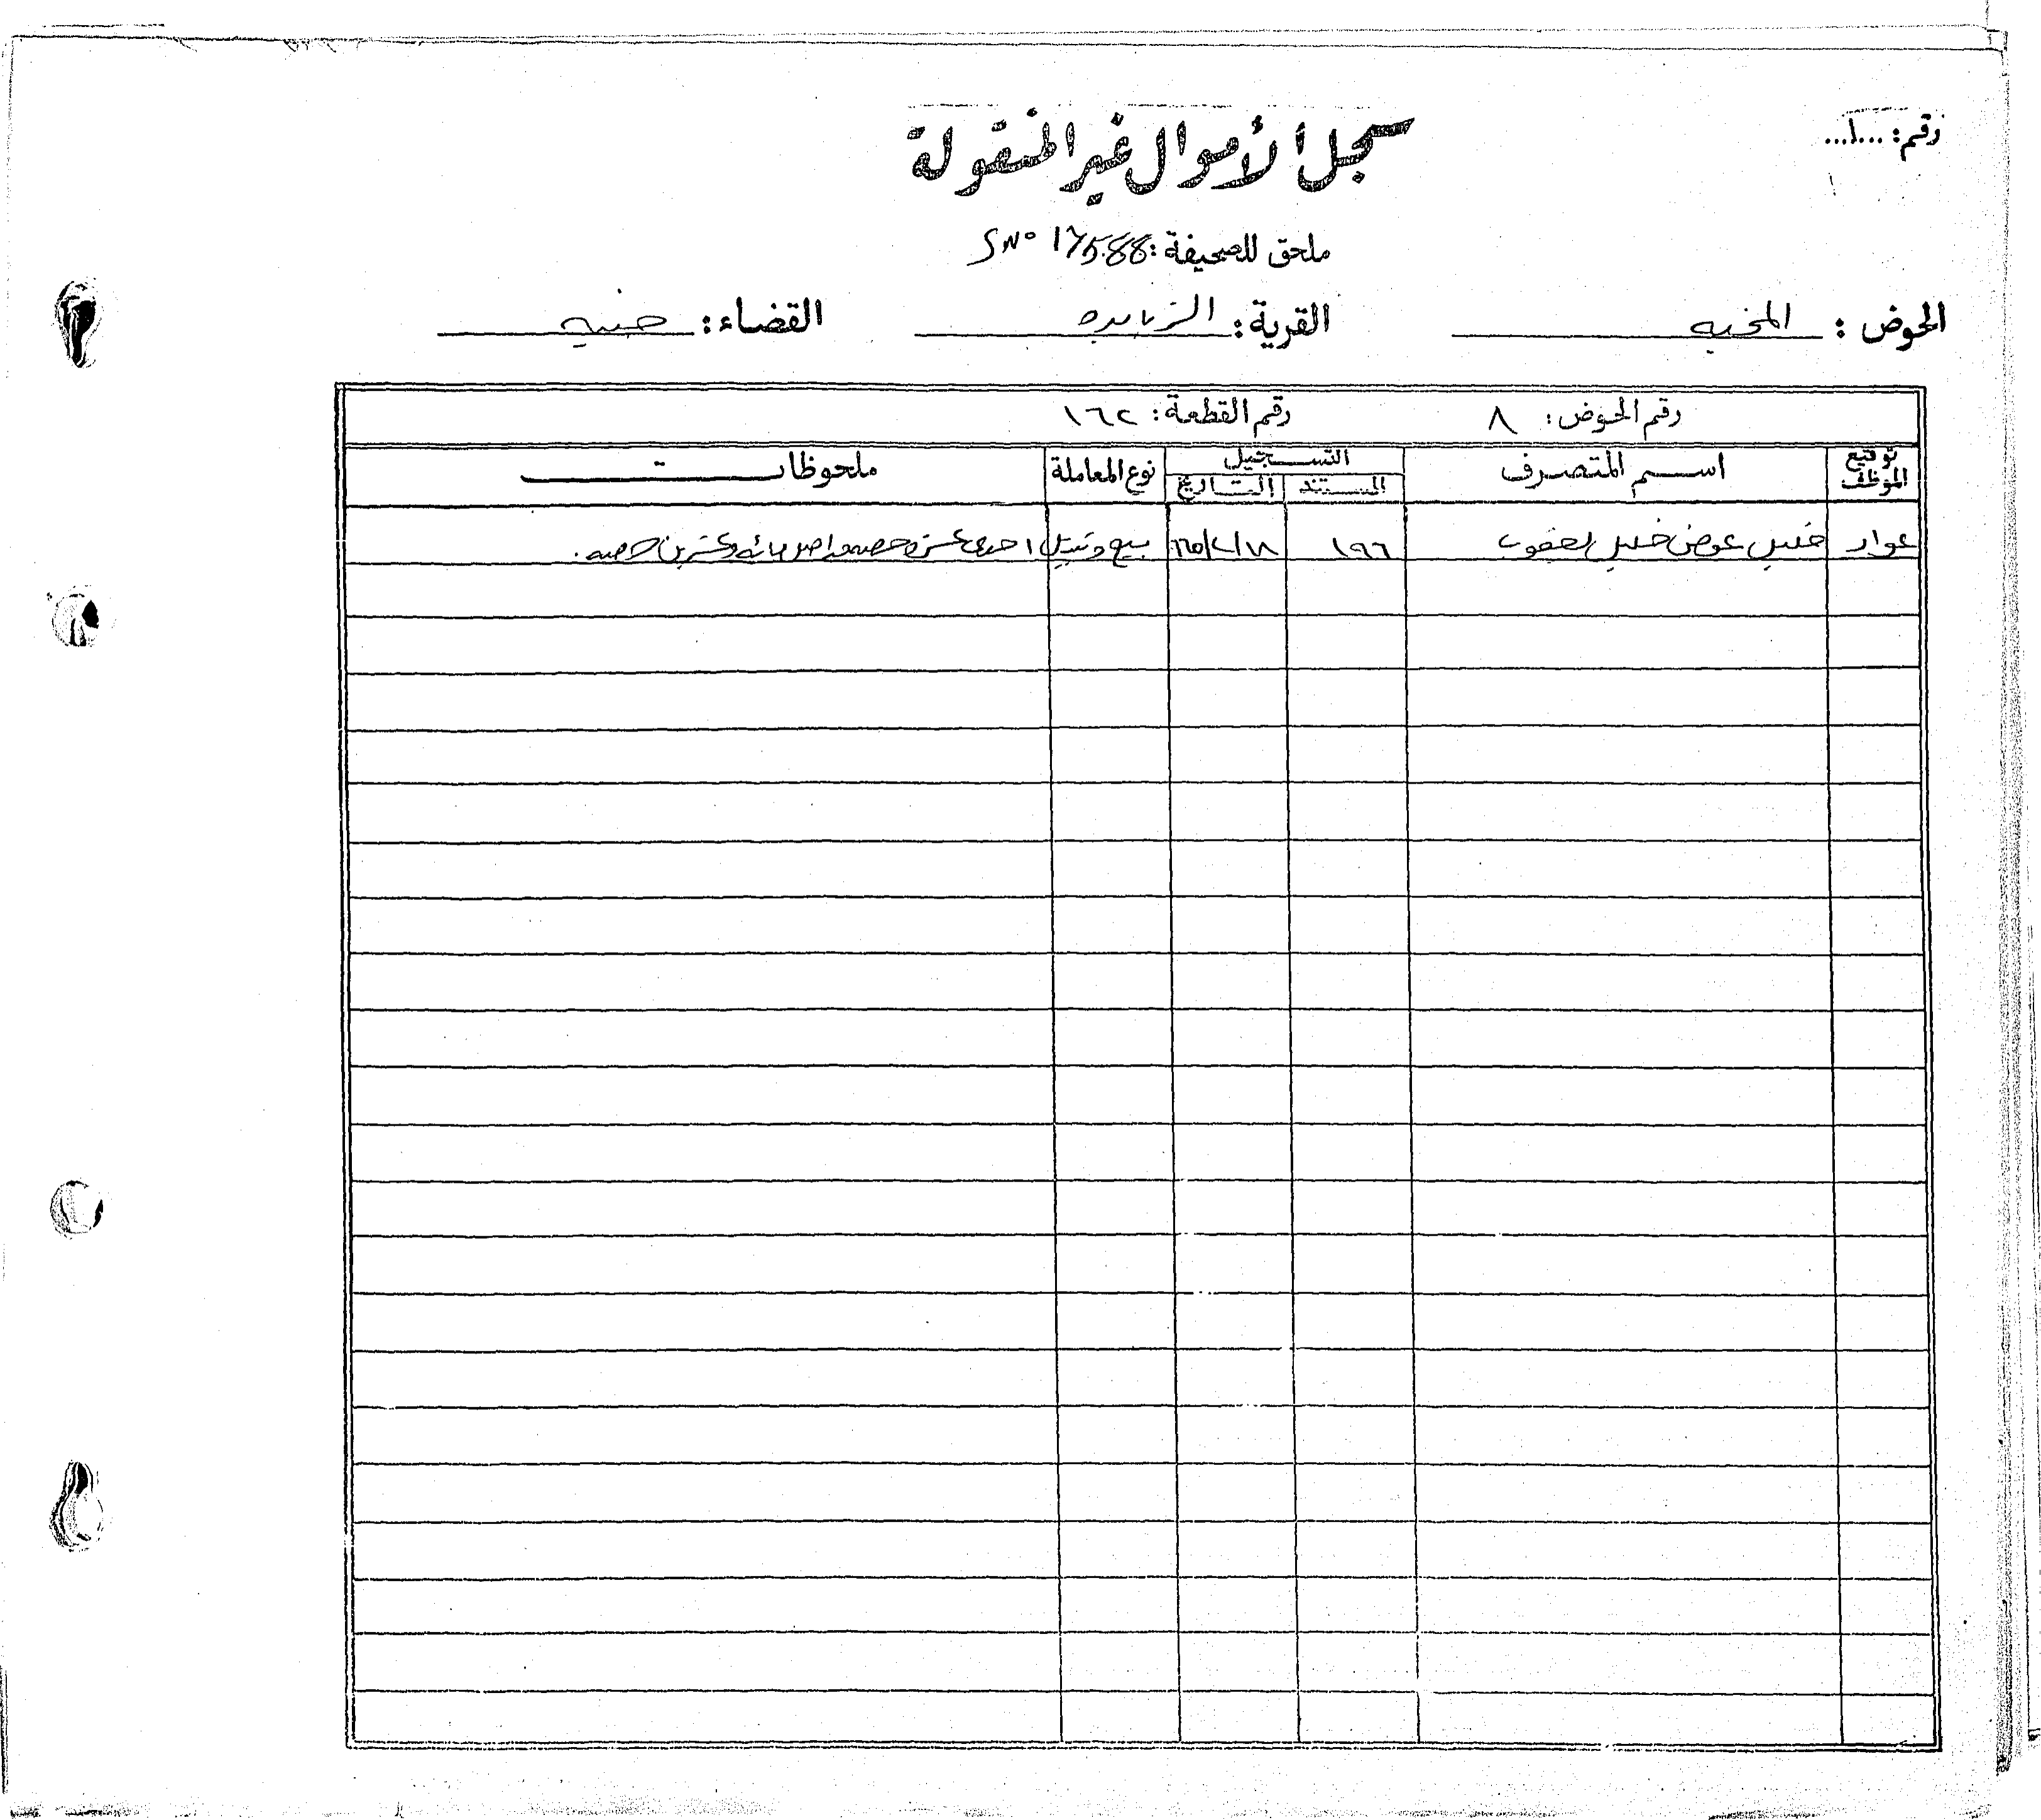 رقم: ...١...
سجل الأموال غير المنقولة
ملحق للصحيفة: SN° 17588
الحوض: المخبه القرية: الزبابده القضاء: جنين
رقم الحوض: ٨ رقم القطعة: ١٦٢
توقيع الموظف اسم المتصرف التسجيل نوع المعاملة ملحوظات
المستند التاريخ
عواد خليل عوض خليل يعقوب ١٩٦ ٦٥/٢/١٨ بيع وتبديل احدى عشرة حصه من اصل مائه وعشرين حصه.